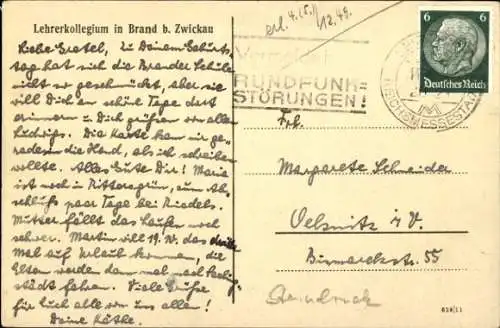 Lehrerkollegium in Brand b. Zwickau
Liebe Gretel, Zu Deinem Geburts-
tag hat sich die Brander Schule
nicht so geschmückt, aber sie
will Dich an schöne Tage dort
erinnern u. Dich grüßen von allen
Ludwigs. Die Karte kam mir ge-
rade in die Hand, als ich schreiben
wollte. Alles Gute Dir! Maria
ist noch in Rittersgrün, zum Ab-
schluß paar Tage bei Riedels.
Mutter fällt das Laufen noch
schwer. Martin will 19. IV. das dritte
Mal auf Urlaub kommen, die
Eltern werden dann mal nach
stadt fahren. Viele Grüße
für Euch alle von uns allen!
Deine Käthe.
erl. 4.(5.)
12.49.
RUNDFUNK=
STÖRUNGEN!
REICHSMESSESTADT
6 6
Deutsches Reich
Frl.
Margarete Schneider
Oelsnitz i. V.
Bismarckstr. 55
Steindruck